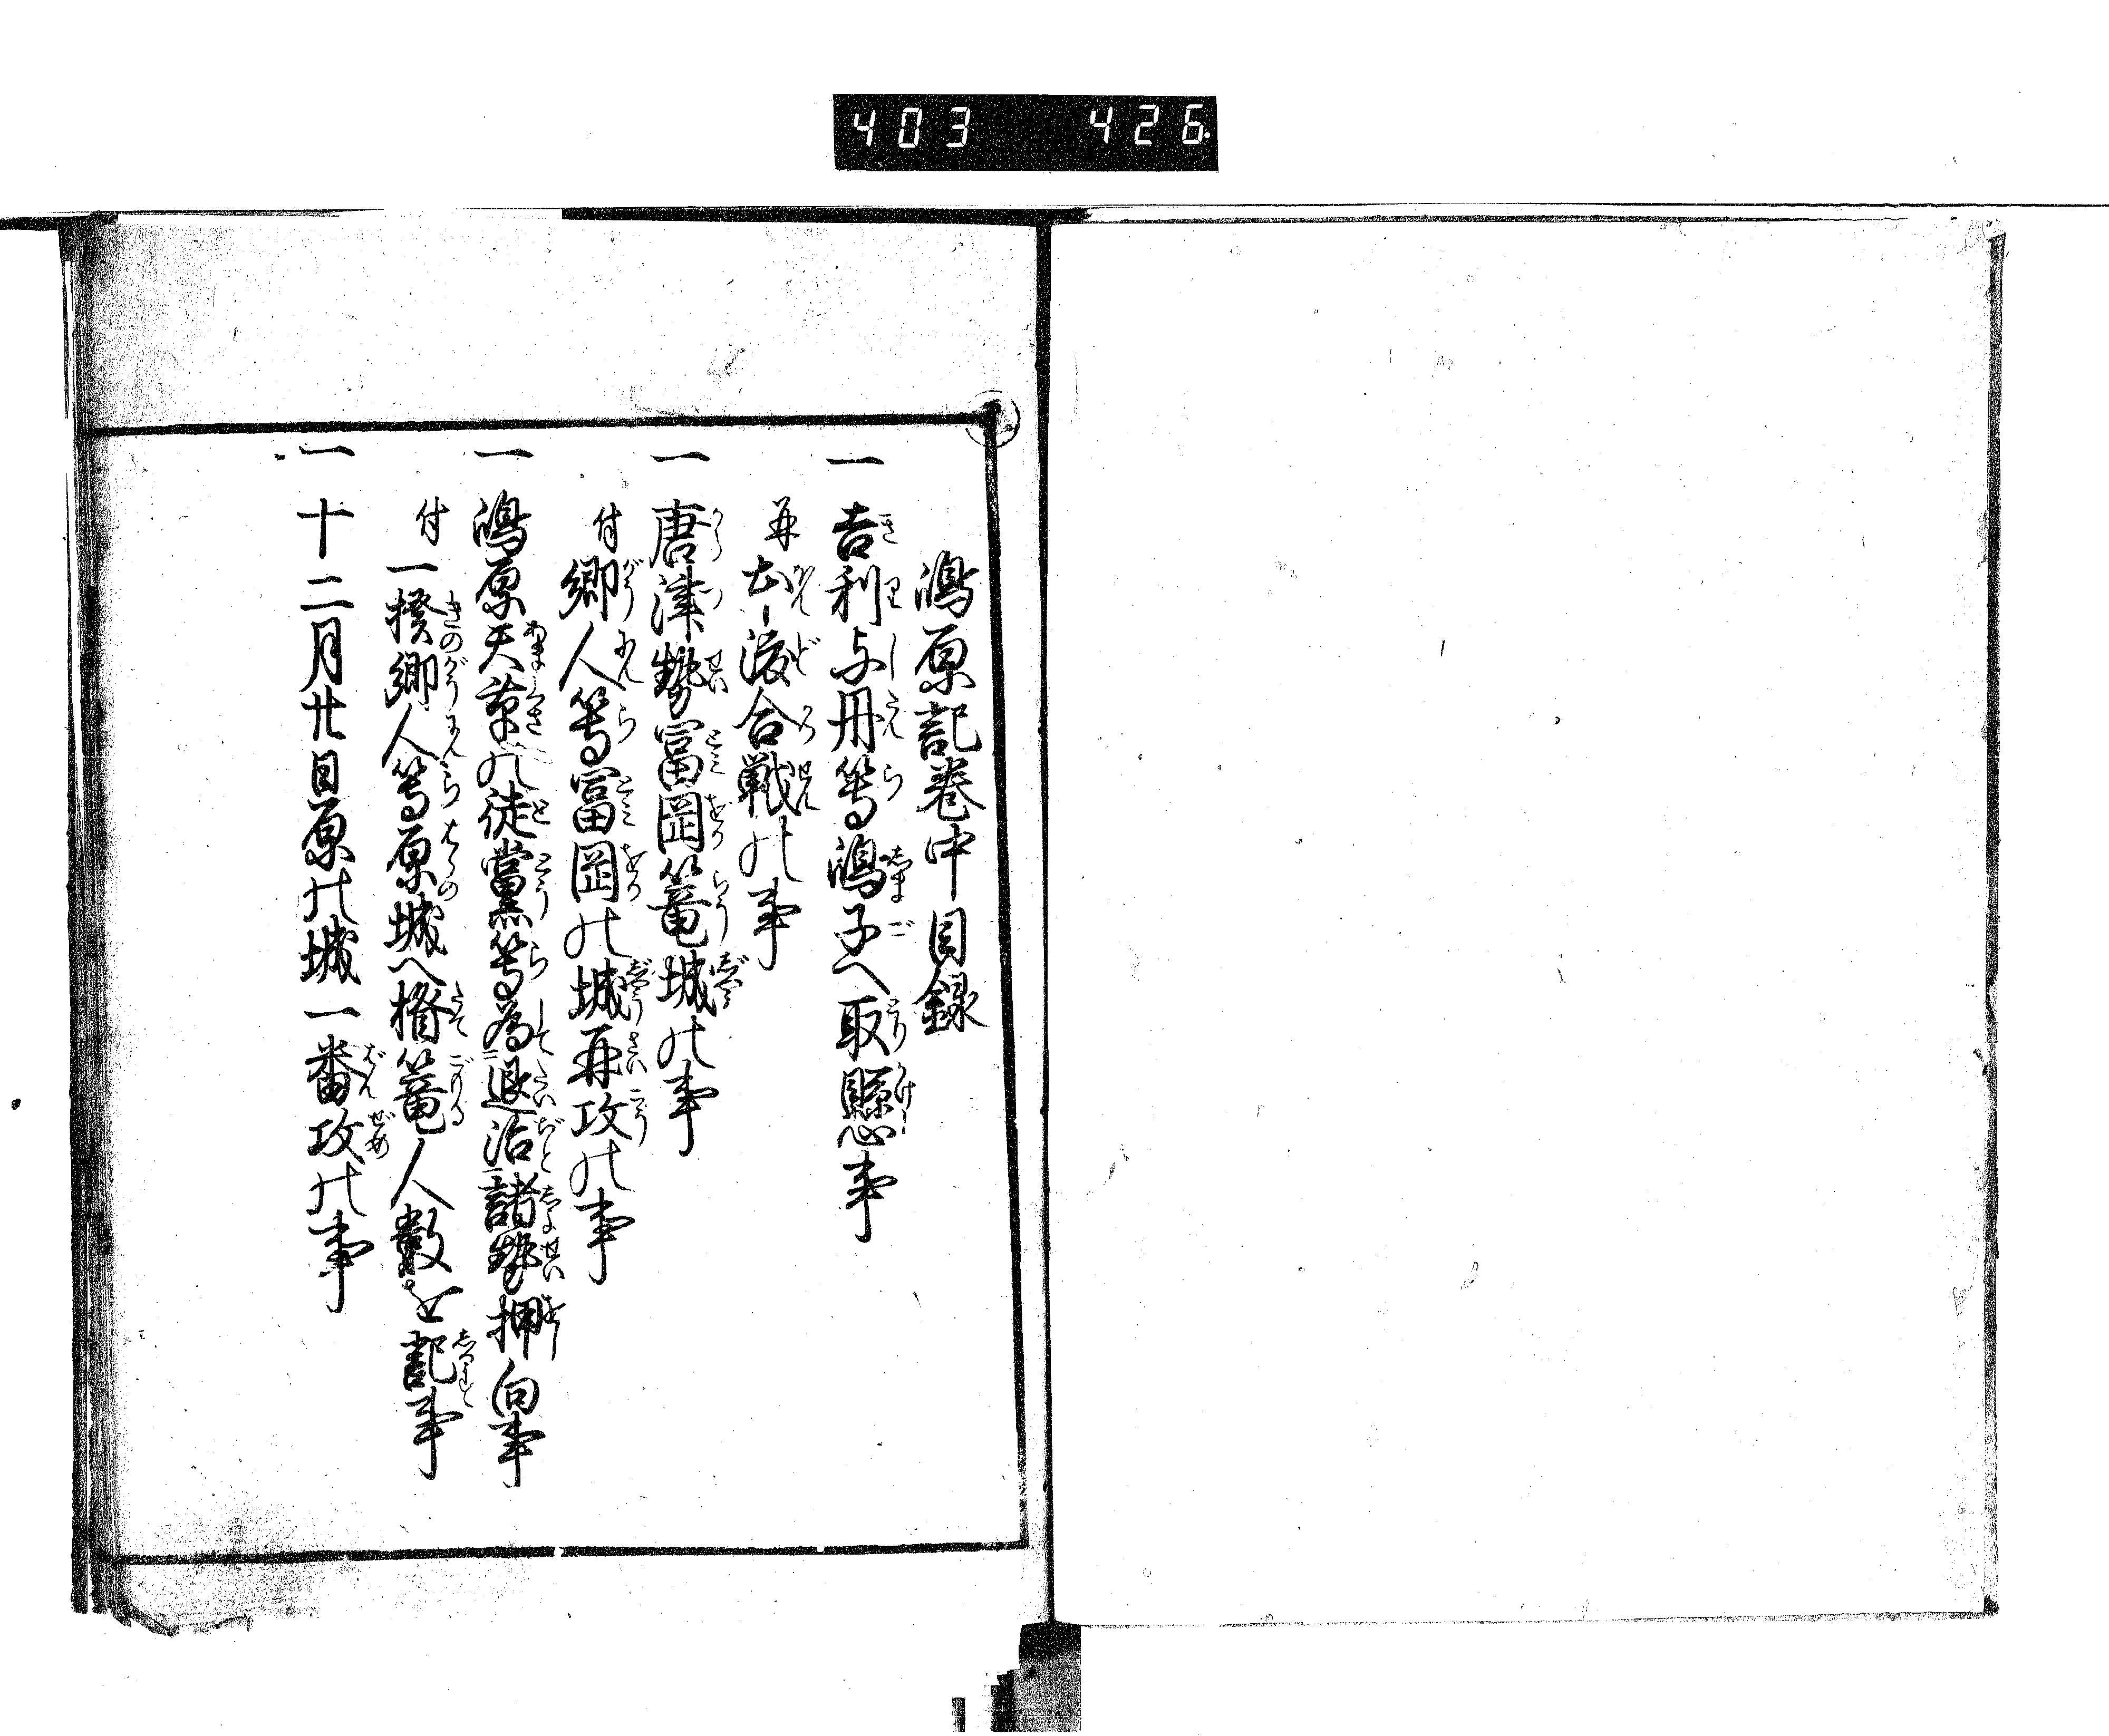 403 426
嶋原記巻中目録
一 吉利支丹等嶋子へ取懸事
并本渡合戦の事
一 唐津勢冨岡篭城の事
付郷人等冨岡の城再攻の事
一 嶋原天草の徒黨等為退治諸勢押向事
付一揆郷人等原城へ楯篭人数を記事
一 十二月廿日原の城一番攻の事